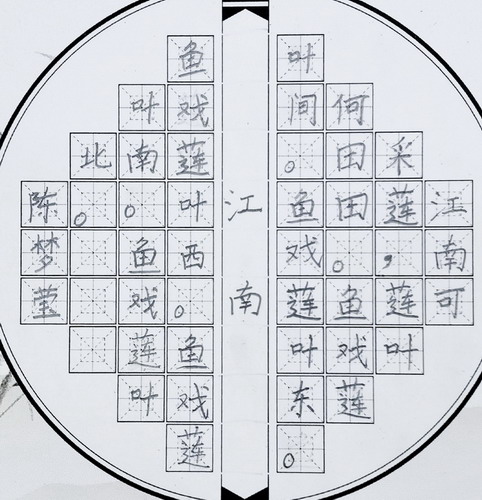 江南
江南可
采莲，莲叶
何田田。鱼戏莲
叶间。鱼戏莲叶东。
鱼戏莲叶西。鱼戏莲
叶南。鱼戏莲叶
北。
陈梦莹